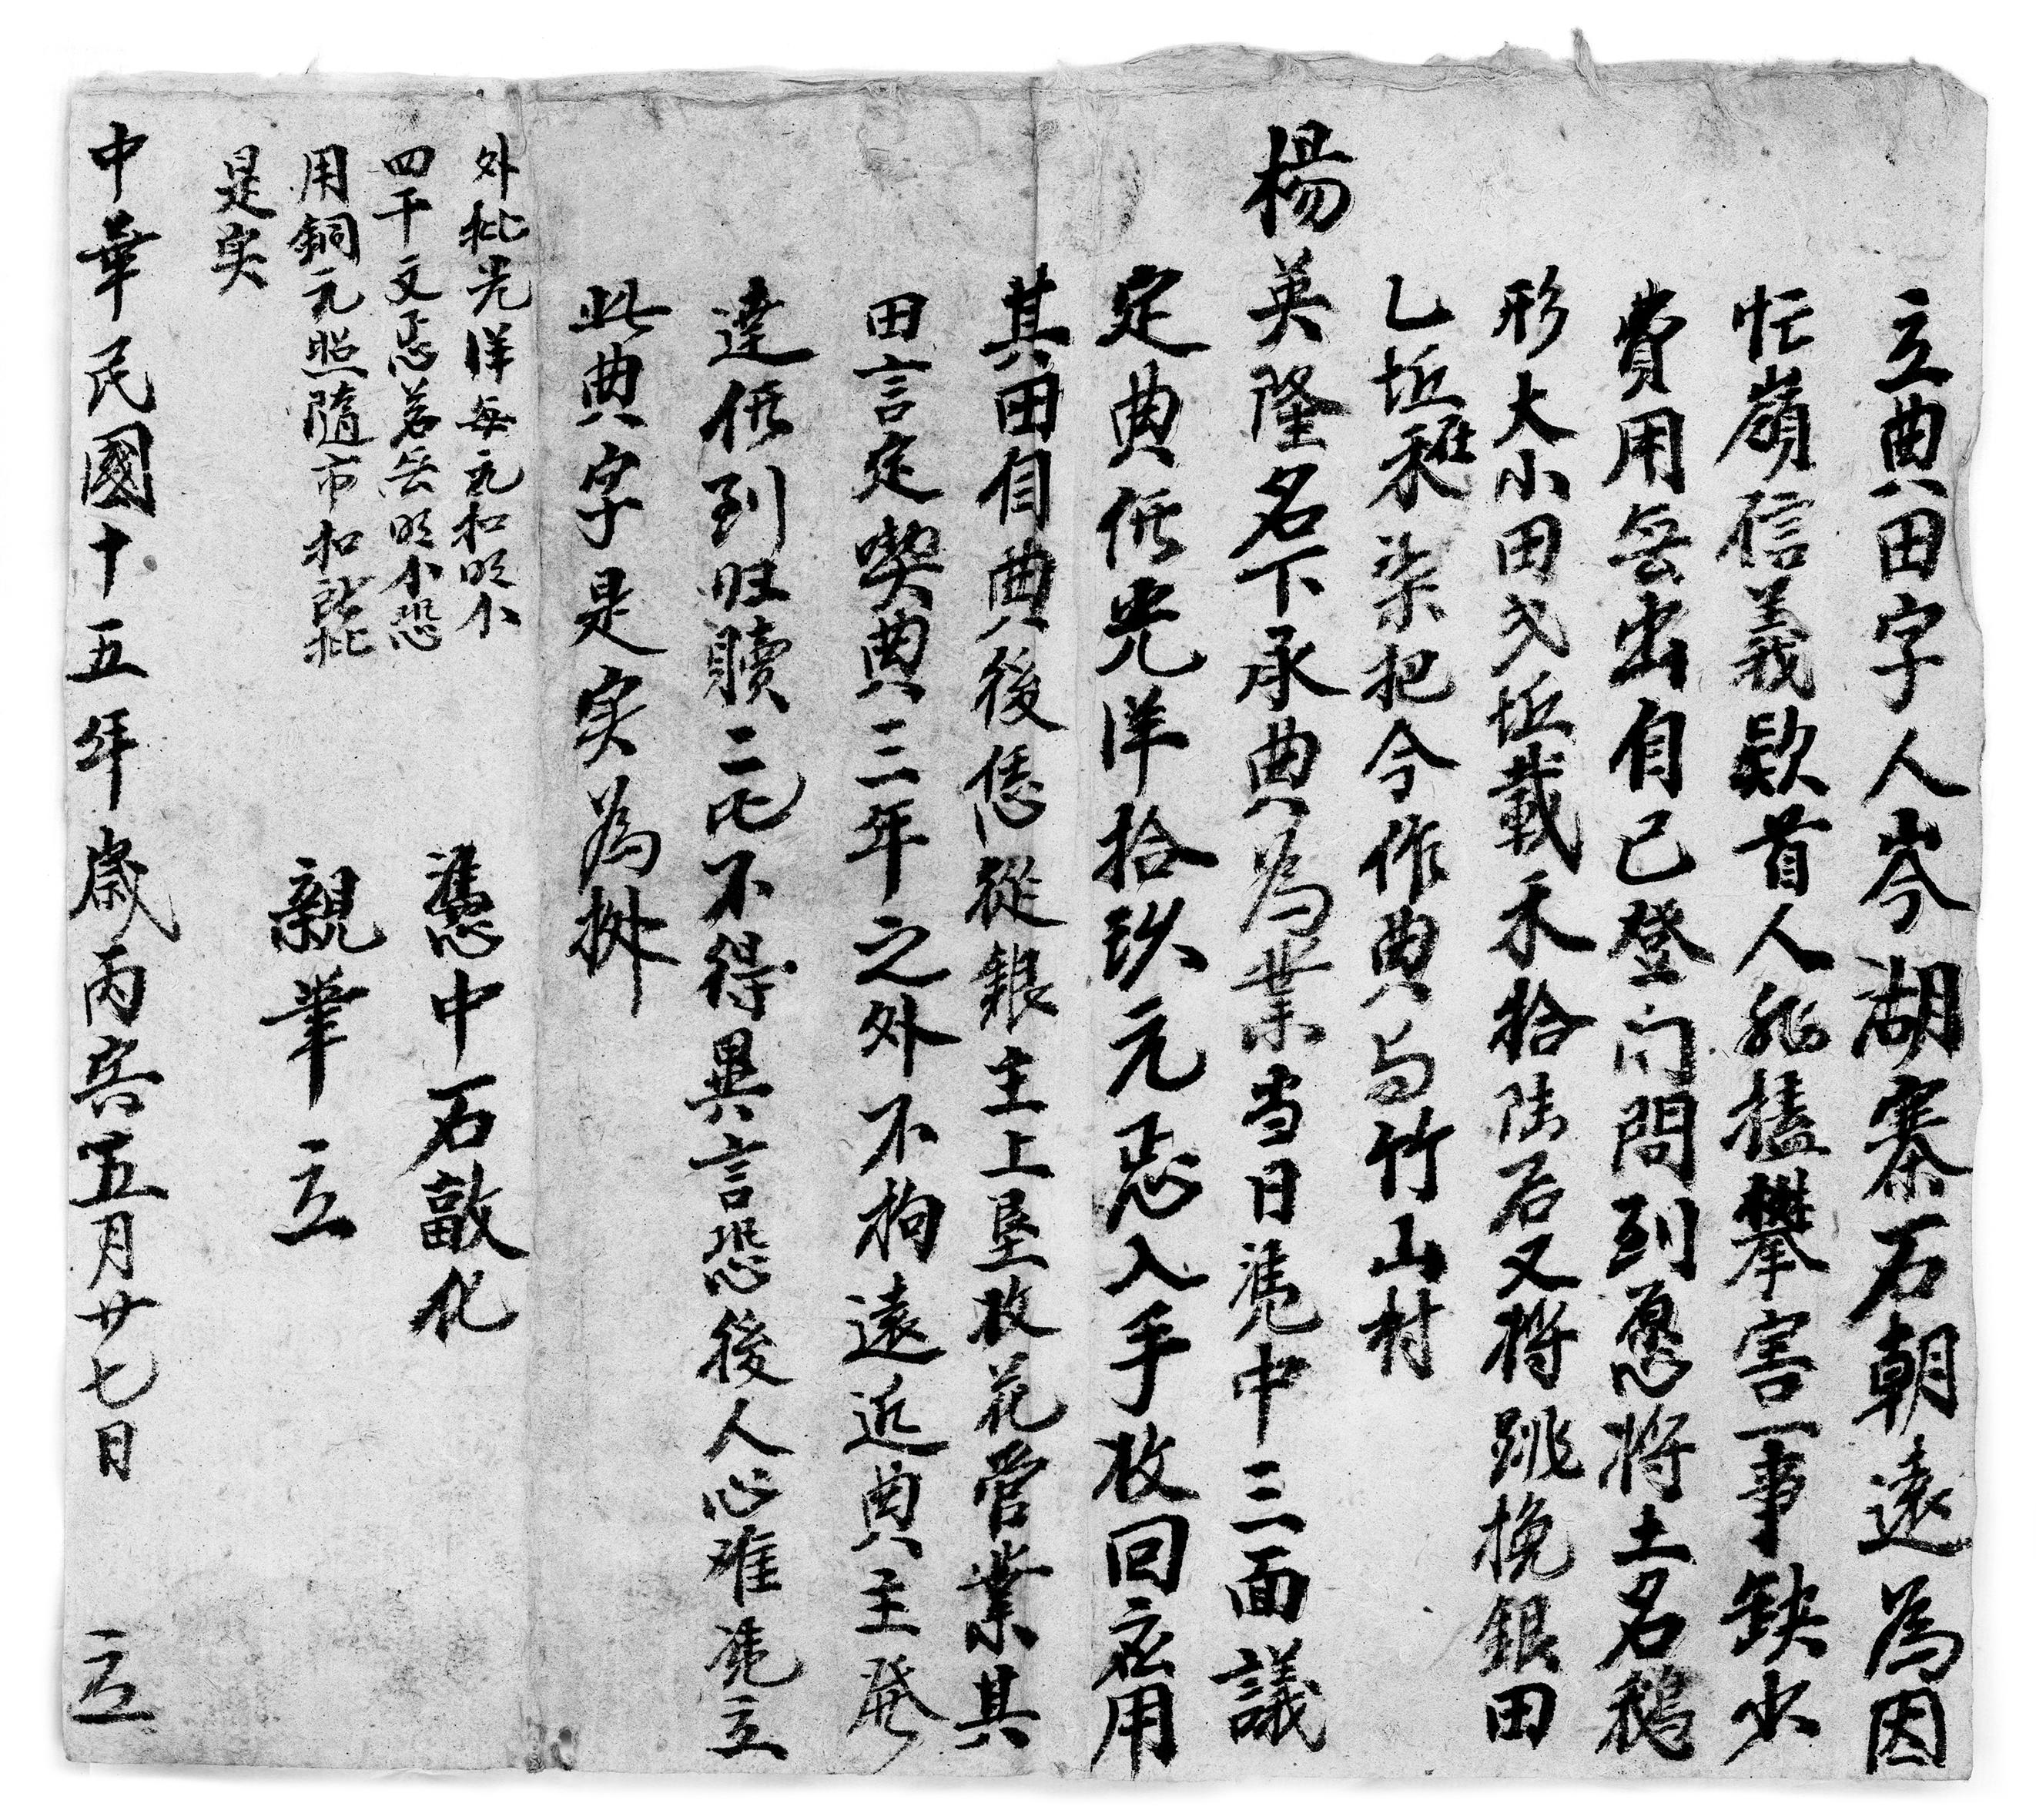 立典田字人岑湖寨石朝遠為因
忙嶺信義欵首人能搕攀害一事缺少
費用無出自己登门問到愿将土名鵝
形大小田弍坵載禾拾陆石又将跳挽銀田
乙坵禾柒把今作典与竹山村
楊英隆名下承典為業当日凭中三面議
定典價光洋拾玖元正入手收回应用
其田自典後恁從銀主上垦收花管業其
田言定喫典三年之外不拘遠近典主發
達價到旺贖二比不得異言恐後人心难凭立
此典字是实為拠
外批光洋每元扣咟小
四千文正若無咟小恐
用銅元照隨市扣批
是实
憑中石敵化
親筆立
中華民國十五年歲丙寅五月廿七日立